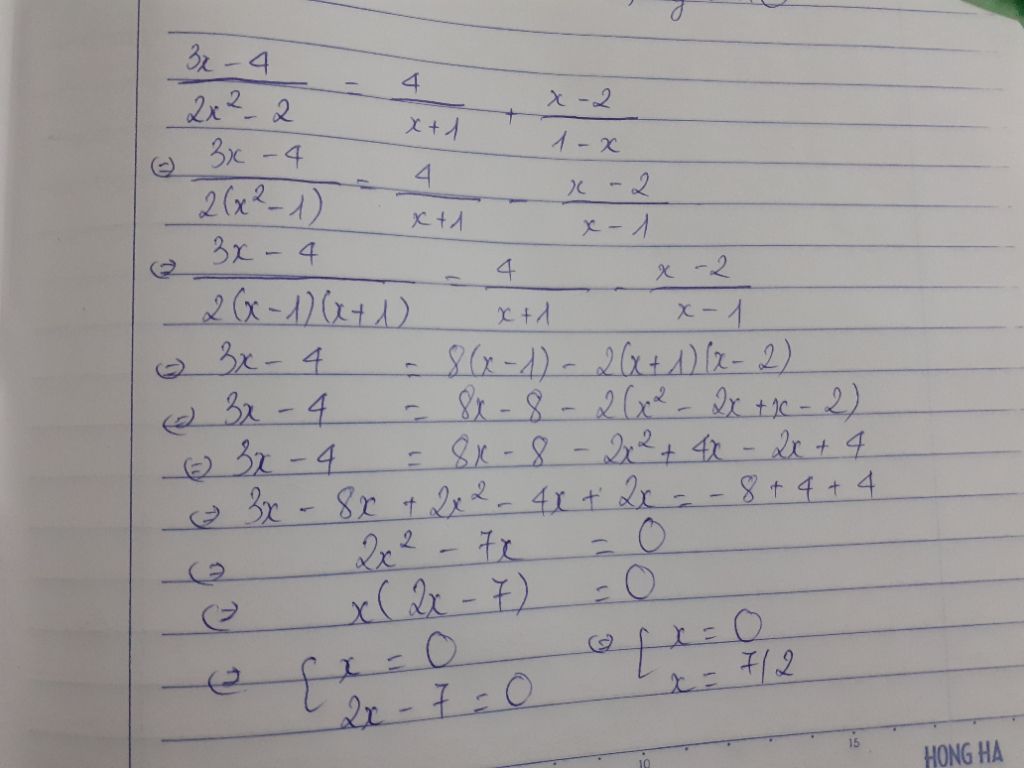 3x - 4 / 2x² - 2 = 4 / x+1 + x - 2 / 1 - x
⇔ 3x - 4 / 2(x² - 1) = 4 / x+1 - x - 2 / x - 1
⇔ 3x - 4 / 2(x-1)(x+1) = 4 / x+1 - x - 2 / x - 1
⇔ 3x - 4 = 8(x-1) - 2(x+1)(x-2)
⇔ 3x - 4 = 8x - 8 - 2(x² - 2x + x - 2)
⇔ 3x - 4 = 8x - 8 - 2x² + 4x - 2x + 4
⇔ 3x - 8x + 2x² - 4x + 2x = - 8 + 4 + 4
⇔ 2x² - 7x = 0
⇔ x(2x - 7) = 0
⇔ { x = 0 ⇔ { x = 0
2x - 7 = 0 x = 7/2
10 15
HONG HA